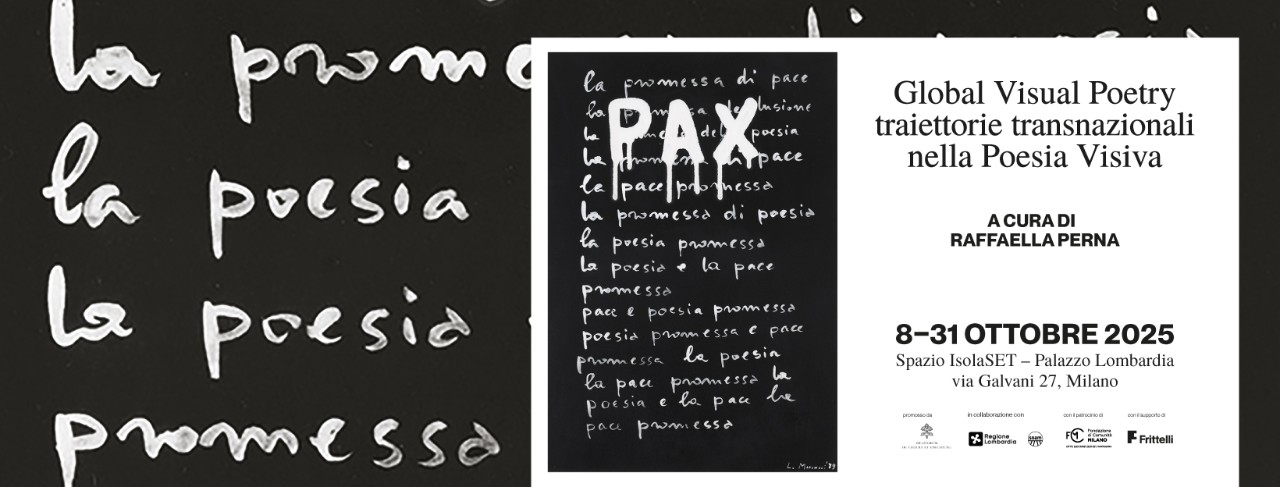 la prom
la poesia
la poesia
promessa
la promessa di pace
la
PAX
poesia
pace
la pace promessa
la promessa di poesia
la poesia promessa
la poesia e la pace
promessa
pace e poesia promessa
poesia promessa e pace
promessa la poesia
la pace promessa la
poesia e la pace la
pace promessa
Global Visual Poetry
traiettorie transnazionali
nella Poesia Visiva
A CURA DI
RAFFAELLA PERNA
8–31 OTTOBRE 2025
Spazio IsolaSET – Palazzo Lombardia
via Galvani 27, Milano
promosso da
in collaborazione con
Regione
Lombardia
con il patrocinio di
Fondazione
di Comunità
MILANO
con il supporto di
Frittelli